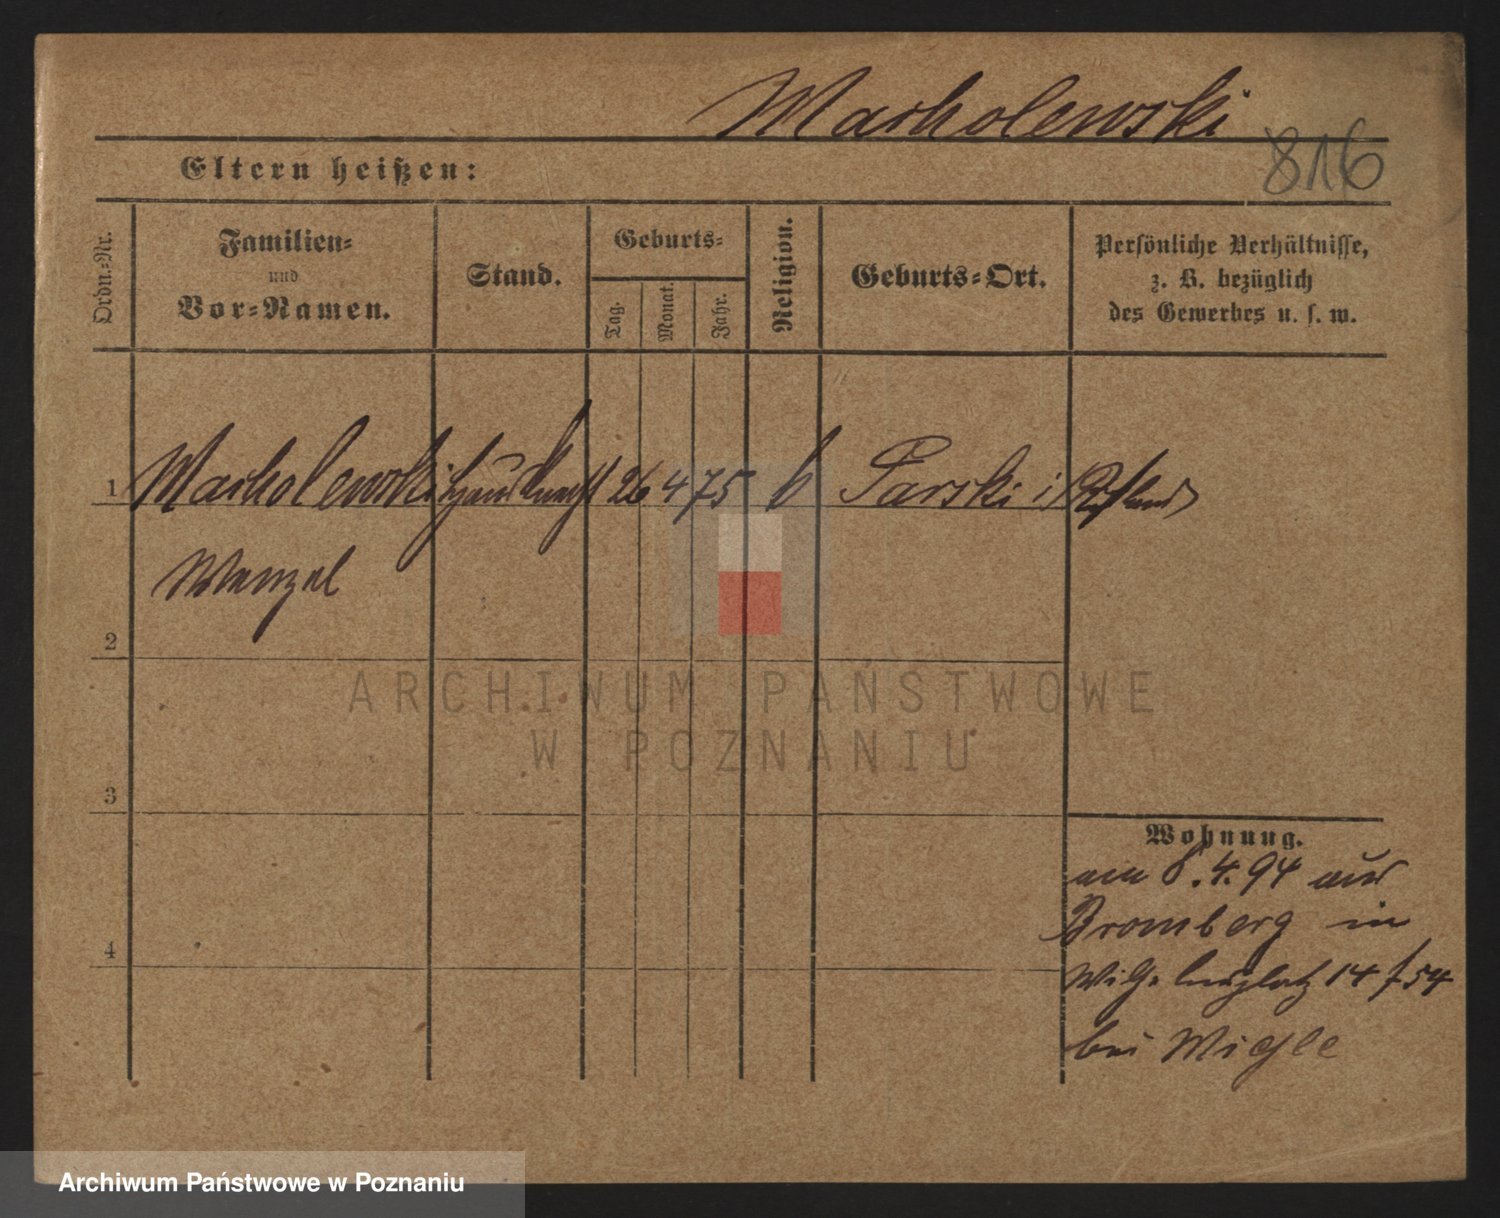 Marholewski
816
Eltern heißen:
Ordn.-Nr.
Familien-
und
Vor-Namen.
Stand.
Geburts-
Tag.
Monat.
Jahr.
Religion.
Geburts-Ort.
Persönliche Verhältnisse,
z. B. bezüglich
des Gewerbes u. s. w.
1 Marholewski Hausknecht 26 4 75 k Parski i/Rußland
Wenzel
2
3
4
Wohnung.
am 8.4.94 aus
Bromberg in
Wilhelmsplatz 14
bei
ARCHIWUM PAŃSTWOWE
W POZNANIU
Archiwum Państwowe w Poznaniu